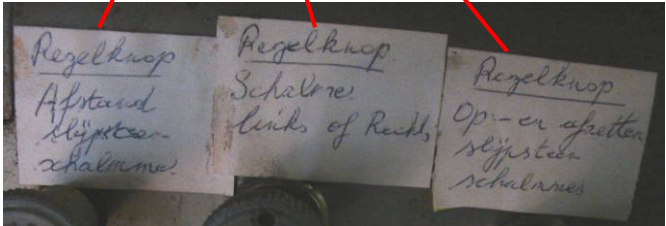 Regelknop
Afstand
slijpsteen
schalmme.
Regelknop.
Schalmes
links of Rechts
Regelknop
Op- en afzetten
slijpsteen
schalmmes